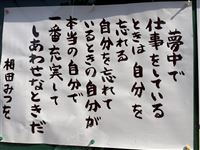 夢中で
仕事をしている
ときは自分を
忘れる
自分を忘れて
いるときの自分が
本当の自分で
一番充実して
しあわせなときだ
相田みつを